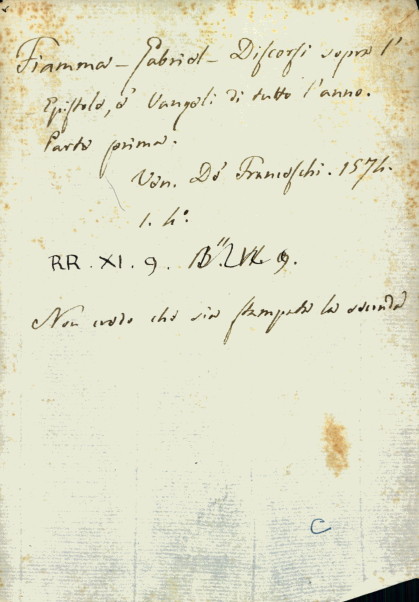 Fiamma - Gabriel - Discorsi sopra l'
Epistole, e' Vangeli di tutto l'anno.
Parte prima.
Ven. De' Franceschi. 1574.
1. 4º.
RR. XI. 9.
Non credo che sia stampata la seconda
C